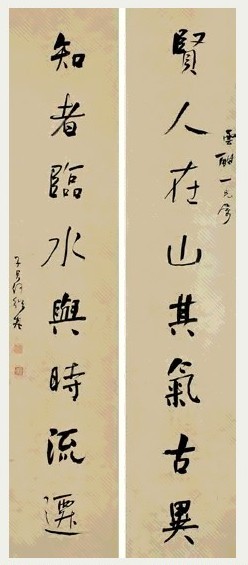 賢人在山其氣古異
雲一兄屬
知者臨水與時流遷
子貞何紹基